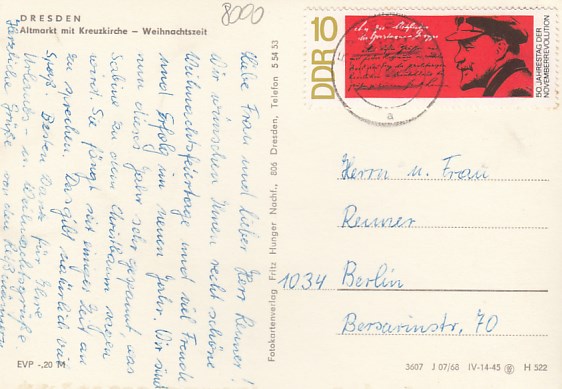 8000
DRESDEN
Altmarkt mit Kreuzkirche – Weihnachtszeit
Liebe Frau und lieber Herr Renner!
Wir wünschen Ihnen recht schöne
Weihnachtsfeiertage und viel Freude
und Erfolg im neuen Jahr. Wir sind
nun dieses Jahr sehr gespannt, was
Sabine zu dem Christbaum sagen
wird. Sie fängt seit einiger Zeit an
zu sprechen. Das gibt natürlich viel
Spaß. Besten Dank für Ihre
Urlaubs- u. Weihnachtsgrüße
Herzliche Grüße von den
EVP -.20 M
Fotokartenverlag Fritz Hunger Nachf., 806 Dresden, Telefon 5 54 53
10
DDR
50. JAHRESTAG DER
NOVEMBERREVOLUTION
a
Herrn u. Frau
Renner
1034 Berlin
Bersarinstr. 70
3607 J 07/68 IV-14-45 H 522